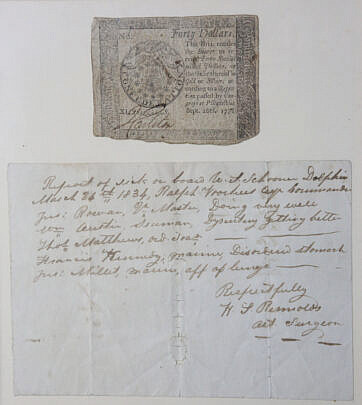 Forty Dollars.
This Bill entitles
the Bearer to re-
ceive Forty Spanish
milled Dollars, or
the Value thereof in
Gold or Silver, ac-
cording to a Resolu-
tion passed by Congress
at Philadelphia
Sept. 26th, 1778.
Report of sick on board the U.S. Schooner Dolphin
March 26th 1834, Ralph Voorhees Esqr Commander
Jas: Rowan, Master, Doing very well
Wm Austin Seaman, Dysentery Getting better
Thos Matthews, ord. Sea:
Francis Kenney, marine, Disordered stomach
Jas: Millet, marine, aff of lungs
Respectfully
W S Reynolds
act. Surgeon